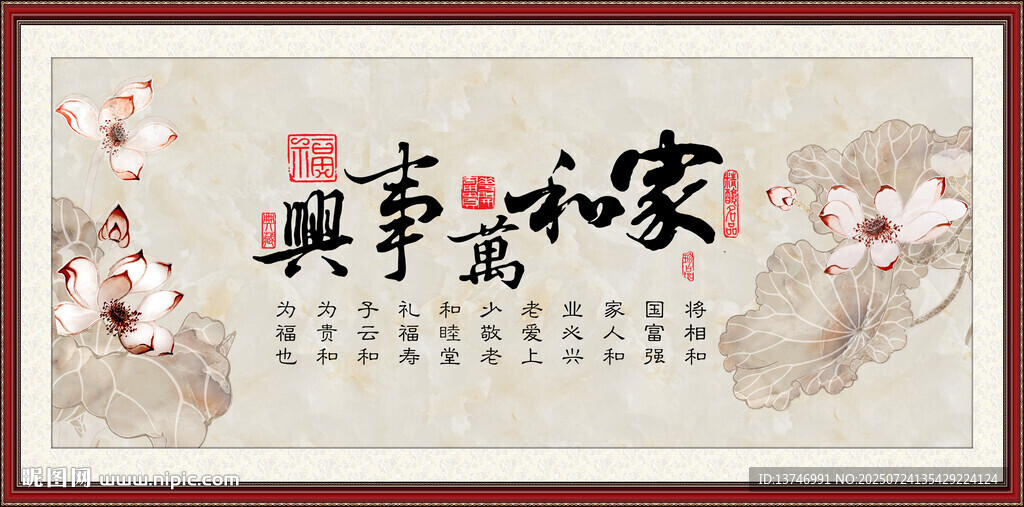 家和萬事興
福
典藏
将相和
国富强
家人和
业必兴
老爱上
少敬老
和睦堂
礼福寿
子云和
为贵和
为福也
昵图网 www.nipic.com
ID:13746991 NO:20250724135429224124